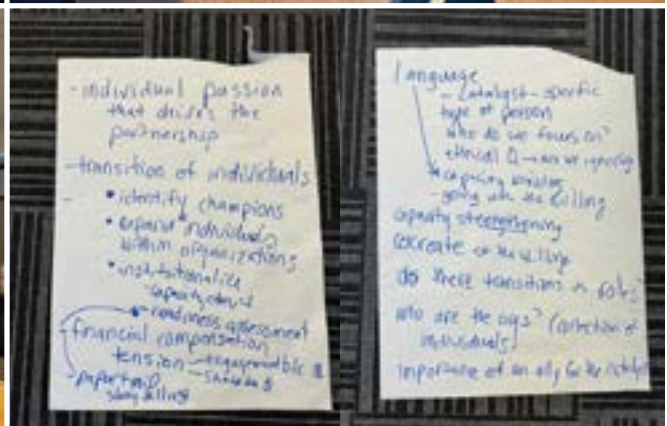 - individual passion
that drives the
partnership
- transition of individuals
-
• identify champions
• expand individuals
within organizations
• institutionalize
- readiness assessment
- financial compensation
tension
- paper trail
story telling
Language
- catalyst - specific
type of person
who do we focus on?
ethical Q → are we ignoring
going with the willing
capacity strengthening
cocreate or the willing
do these transitions in roles?
who are the orgs? (collection of
individuals)
importance of an ally for the catalyst